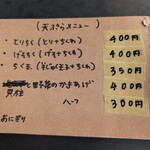 (天ぷらメニュー)
・とりちく(とり+ちくわ) 400円
・げそちく(げそ+ちくわ) 400円
・ちく玉(半じゅく玉子+ちくわ) 350円
と野菜のかきあげ 400円
ハーフ 300円
おにぎり